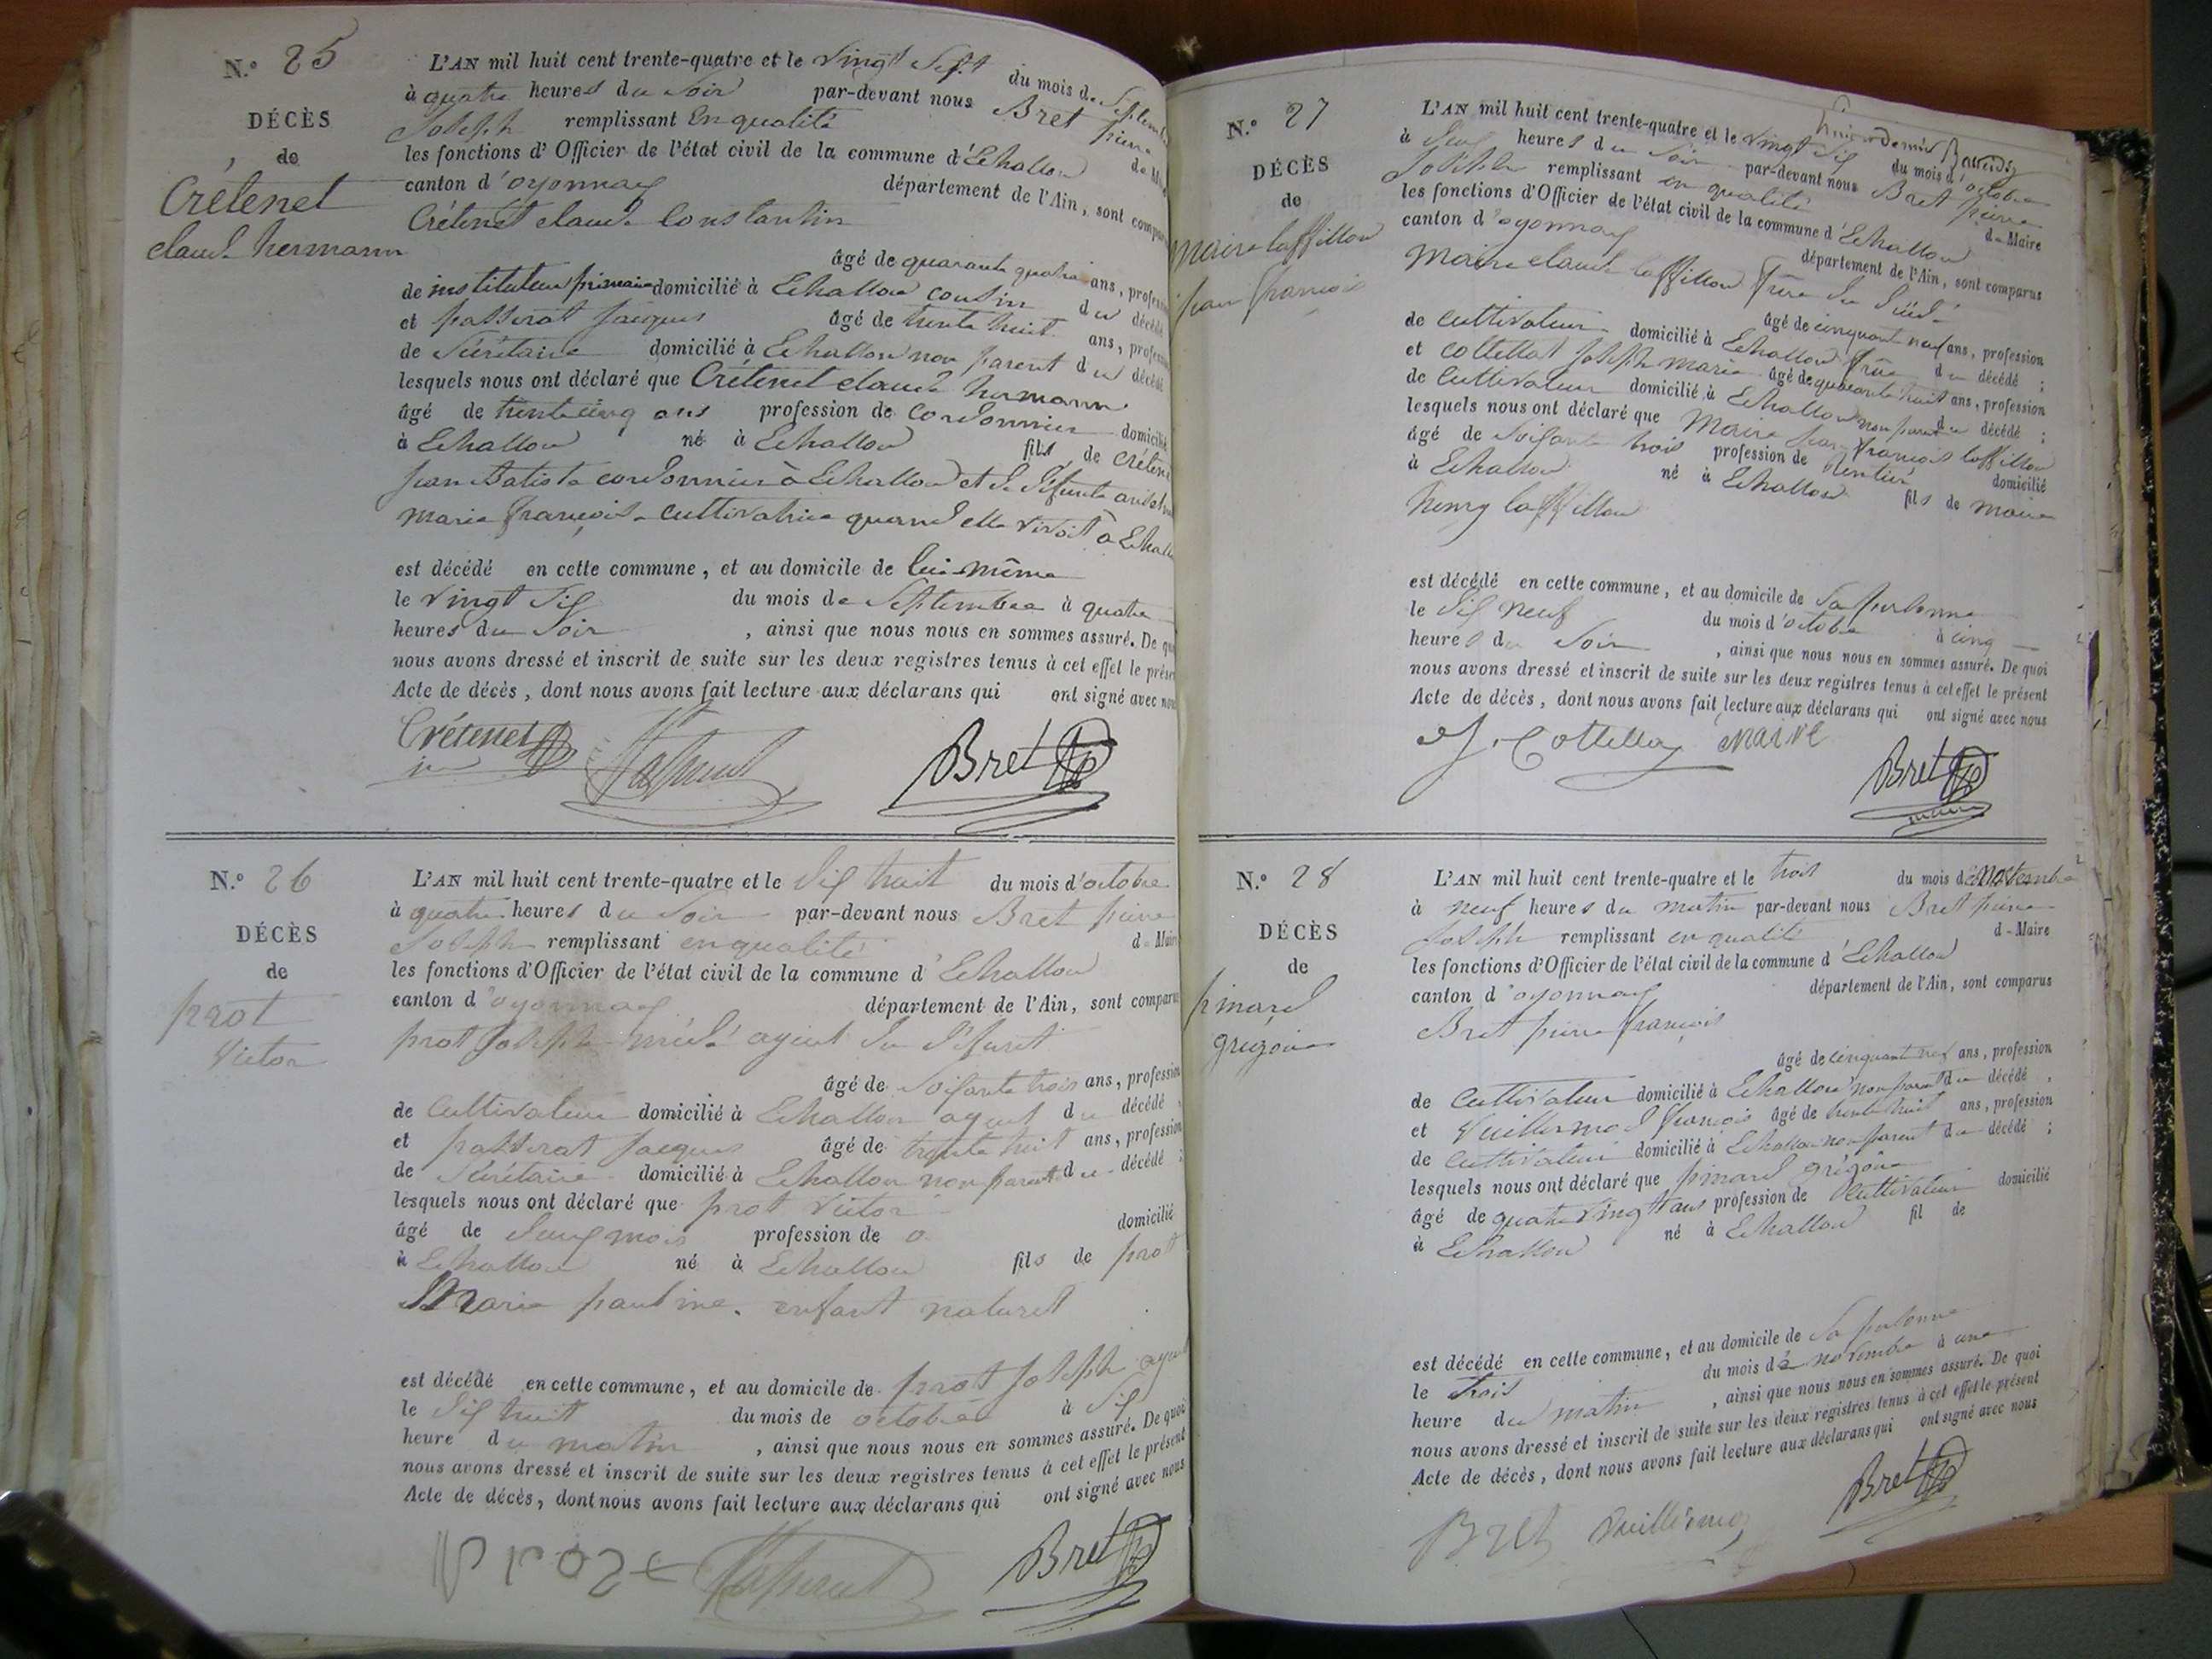 N.° 25
DÉCÈS
de
Crétenet
claude hermann
L'AN mil huit cent trente-quatre et le vingt Sept du mois de Septembre
à quatre heures du Soir par-devant nous Bret pierre
Joseph remplissant en qualité de Maire
les fonctions d'Officier de l'état civil de la commune d'Echallon
canton d'oyonnax département de l'Ain, sont comparus
Crétenet claude Constantin
âgé de quarante quatre ans, profession
de instituteur primaire domicilié à Echallon cousin du décédé
et passerat jacques âgé de trente huit ans, profession
de Sécrétaire domicilié à Echallon non parent du décédé
lesquels nous ont déclaré que Crétenet claude hermann
âgé de trente cinq ans profession de cordonnier domicilié
à Echallon né à Echallon fils de crétenet
jean Batiste cordonnier à Echallon et de défunte
marie françoise cultivatrice quand elle vivoit à Echallon
est décédé en cette commune, et au domicile de lui-même
le vingt Six du mois de Septembre à quatre
heures du Soir, ainsi que nous nous en sommes assuré. De quoi
nous avons dressé et inscrit de suite sur les deux registres tenus à cet effet le présent
Acte de décès, dont nous avons fait lecture aux déclarans qui ont signé avec nous
Crétenet Passerat Bret
N.° 26
DÉCÈS
de
prost
Victor
L'AN mil huit cent trente-quatre et le dix huit du mois d'octobre
à quatre heures du Soir par-devant nous Bret pierre
Joseph remplissant en qualité de Maire
les fonctions d'Officier de l'état civil de la commune d'Echallon
canton d'oyonnax département de l'Ain, sont comparus
prost Joseph ayeul du défunt
âgé de Soixante trois ans, profession
de cultivateur domicilié à Echallon ayeul du décédé
et passerat Jacques âgé de trente huit ans, profession
de Sécrétaire domicilié à Echallon non parent du décédé ;
lesquels nous ont déclaré que prost victor
âgé de mois profession de o domicilié
à Echallon né à Echallon fils de prost
Marie pauline. enfant naturel
est décédé en cette commune, et au domicile de prost joseph ayeul
le dix huit du mois de octobre à dix
heure du matin, ainsi que nous nous en sommes assuré. De quoi
nous avons dressé et inscrit de suite sur les deux registres tenus à cet effet le présent
Acte de décès, dont nous avons fait lecture aux déclarans qui ont signé avec nous
Passerat Bret
N.° 27
DÉCÈS
de
maire laffillon
jean françois
L'AN mil huit cent trente-quatre et le vingt du mois d'octobre
à heures du Soir par-devant nous Bret pierre
Joseph remplissant en qualité de Maire
les fonctions d'Officier de l'état civil de la commune d'Echallon
canton d'oyonnax département de l'Ain, sont comparus
Maire claude laffillon frère du
âgé de cinquante neuf ans, profession
de cultivateur domicilié à Echallon frère du décédé ;
et cottellat joseph marie âgé de quarante huit ans, profession
de cultivateur domicilié à Echallon non parent du décédé ;
lesquels nous ont déclaré que Maire jean françois laffillon
âgé de Soixante trois profession de Rentier domicilié
à Echallon né à Echallon fils de maire
henry laffillon
est décédé en cette commune, et au domicile de Sa personne
le dix neuf du mois d'octobre à cinq
heures du Soir, ainsi que nous nous en sommes assuré. De quoi
nous avons dressé et inscrit de suite sur les deux registres tenus à cet effet le présent
Acte de décès, dont nous avons fait lecture aux déclarans qui ont signé avec nous
maire Bret
maire
N.° 28
DÉCÈS
de
pinard
gregoire
L'AN mil huit cent trente-quatre et le trois du mois de novembre
à neuf heures du matin par-devant nous Bret pierre
Joseph remplissant en qualité de Maire
les fonctions d'Officier de l'état civil de la commune d'Echallon
canton d'oyonnax département de l'Ain, sont comparus
Bret pierre françois
âgé de cinquante neuf ans, profession
de cultivateur domicilié à Echallon non parent du décédé ,
et Vuillermoz françois âgé de trente huit ans, profession
de cultivateur domicilié à Echallon non parent du décédé ;
lesquels nous ont déclaré que pinard grégoire
âgé de quatre vingt ans profession de cultivateur domicilié
à Echallon né à Echallon fil de
est décédé en cette commune, et au domicile de Sa personne
le trois du mois de novembre à une
heure du matin, ainsi que nous nous en sommes assuré. De quoi
nous avons dressé et inscrit de suite sur les deux registres tenus à cet effet le présent
Acte de décès, dont nous avons fait lecture aux déclarans qui ont signé avec nous
Bret Vuillermoz Bret